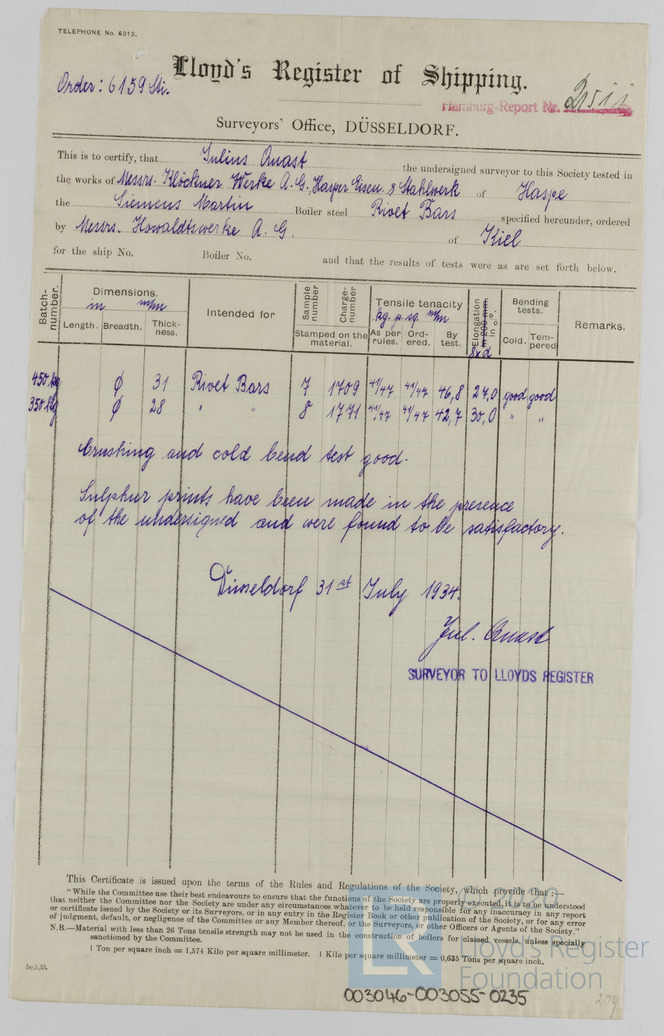 TELEPHONE No. 6313.
Order: 6159 Sti.
Lloyd's Register of Shipping.
Hamburg-Report Nr.
Surveyors' Office, DÜSSELDORF.
This is to certify, that Julius Quast the undersigned surveyor to this Society tested in
the works of Messrs. Klöckner Werke A.G. Hasper Eisen & Stahlwerk of Haspe
the Siemens Martin Boiler steel Rivet Bars specified hereunder, ordered
by Messrs. Howaldtswerke A.G. of Kiel
for the ship No. Boiler No. and that the results of tests were as are set forth below.
Batch-number. Dimensions. in m/m Length. Breadth. Thick-ness. Intended for Sample number Charge-number Stamped on the material. Tensile tenacity kg. p. sq. m/m As per rules. Ord-ered. By test. Elongation in 200 mm. in %. 8xd Bending tests. Cold. Tem-pered Remarks.
450 kg φ 31 Rivet Bars 7 1709 41/47 41/47 46,8 27,0 good good
350 kg φ 28 " " 8 1771 41/47 41/47 42,7 30,0 " "
Crushing and cold bend test good.
Sulphur prints have been made in the presence
of the undersigned and were found to be satisfactory.
Düsseldorf 31st July 1934.
Jul. Quast
SURVEYOR TO LLOYDS REGISTER
This Certificate is issued upon the terms of the Rules and Regulations of the Society, which provide that :—
"While the Committee use their best endeavours to ensure that the functions of the Society are properly executed, it is to be understood
that neither the Committee nor the Society are under any circumstances whatever to be held responsible for any inaccuracy in any report
or certificate issued by the Society or its Surveyors, or in any entry in the Register Book or other publication of the Society, or for any error
of judgment, default, or negligence of the Committee or any Member thereof, or the Surveyors, or other Officers or Agents of the Society."
N.B.—Material with less than 26 Tons tensile strength may not be used in the construction of boilers for classed vessels, unless specially
sanctioned by the Committee.
1 Ton per square inch = 1,574 Kilo per square millimetre. 1 Kilo per square millimetre = 0,635 Tons per square inch.
LR
© 2020
Lloyd's Register
Foundation
003046-003055-0235